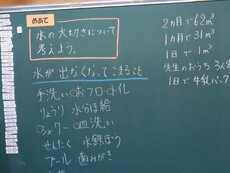 めあて
水の大切さについて
考えよう。
水が出なくなってこまること
手洗い おフロ トイレ
りょうり 水分ほ給
シャワー 皿洗い
せんたく 水鉄ぽう
プール 歯みがき
2カ月で62m³
1カ月で31m³
1日で1m³
先生のおうち 3人家
1日で牛乳パック